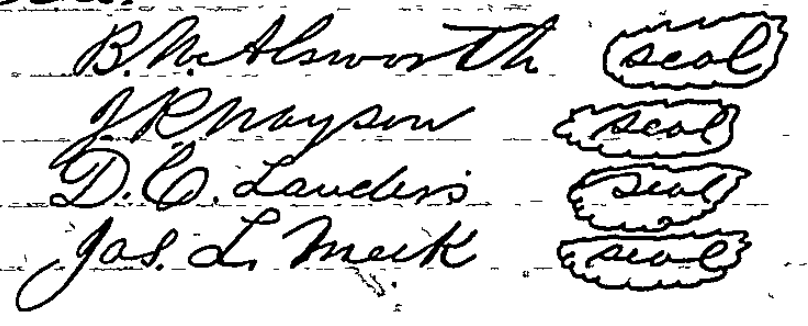 B. W. Alsworth seal
J. R. Mayson seal
D. C. Landers seal
Jas. L. Meek seal